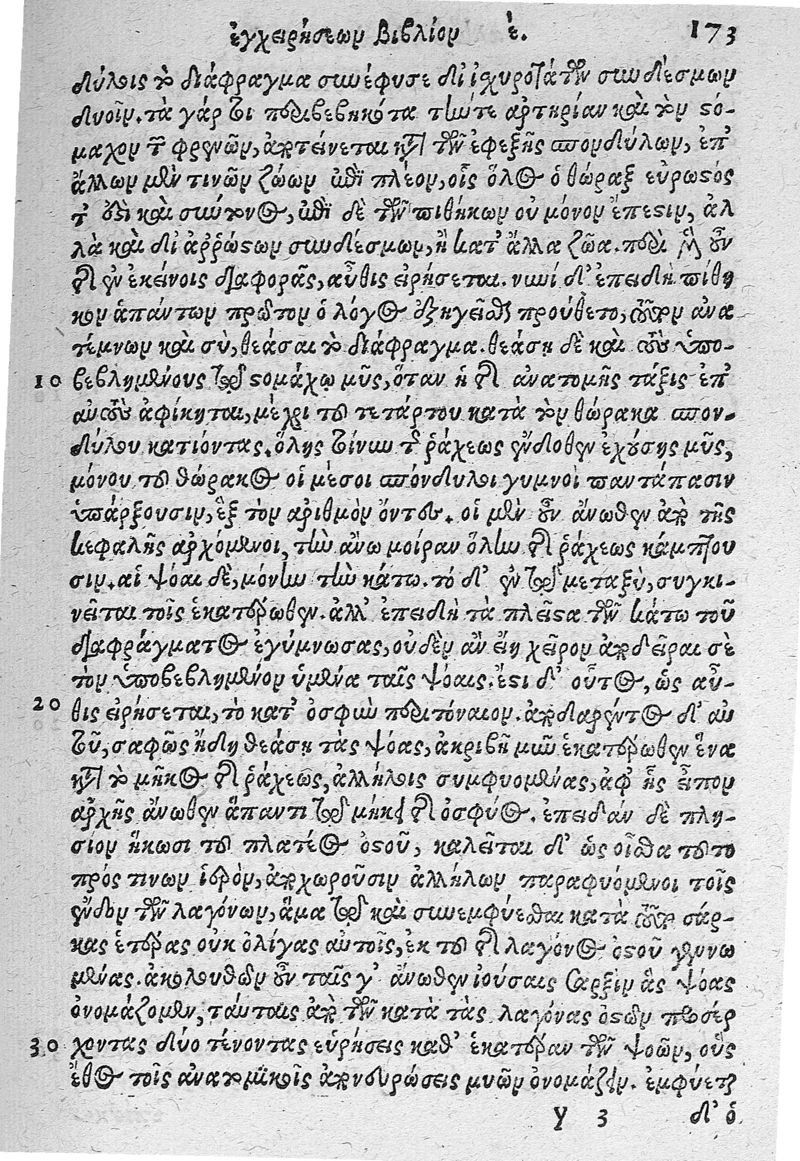 ἐγχειρήσεων βιβλίον έ. 173
δύλοις τὸ διάφραγμα συνέφυσε δι' ἰσχυροτάτων συνδέσμων
δυοῖν. τὰ γάρ τοι περιβεβηκότα τήν τε ἀρτηρίαν καὶ τὸν στό-
μαχον τῶν φρενῶν, ἀποτείνεται κατὰ τῶν ἐφεξῆς σπονδύλων, ἐπ'
ἄλλων μέν τινων ζώων ἐπὶ πλέον, οἷς ὅλος ὁ θώραξ εὔρωστός
τ' ἐστὶ καὶ σύντονος, ἐπὶ δὲ τῶν πιθήκων οὐ μόνον ἔπεστιν, ἀλ
λὰ καὶ δι' ἀῤῥώστων συνδέσμων, ἢ κατ' ἄλλα ζῶα. περὶ μὲν οὖν
τῆς ἐν ἐκείνοις διαφορᾶς, αὖθις εἰρήσεται. νυνὶ δ' ἐπειδὴ πίθη
κον ἁπάντων πρῶτον ὁ λόγος ἐξηγεῖσθαι προύθετο, τοῦτον ἀνα
τέμνων καὶ σὺ, θέασαι τὸ διάφραγμα. θεάσῃ δὲ καὶ τοὺς ὑπο-
10 βεβλημένους τῷ στομάχῳ μῦς, ὅταν ἡ τῆς ἀνατομῆς τάξις ἐπ'
αὐτοὺς ἀφίκηται, μέχρι τοῦ τετάρτου κατὰ τὸν θώρακα σπον-
δύλου κατιόντας. ὅλης τοίνυν τῆς ῥάχεως ἔνδοθεν ἐχούσης μῦς,
μόνου τοῦ θώρακος οἱ μέσοι σπόνδυλοι γυμνοὶ παντάπασιν
ὑπάρξουσιν, ἓξ τὸν ἀριθμὸν ὄντες. οἱ μὲν οὖν ἄνωθεν ἀπὸ τῆς
κεφαλῆς ἀρχόμενοι, τὴν ἄνω μοίραν ὅλην τῆς ῥάχεως κάμπτου
σιν. αἱ ψόαι δὲ, μόνην τὴν κάτω. τὸ δ' ἐν τῷ μεταξὺ, συγκι-
νεῖται τοῖς ἑκατέρωθεν. ἀλλ' ἐπειδὴ τὰ πλεῖστα τῶν κάτω τοῦ
διαφράγματος ἐγύμνωσας, οὐδὲν ἂν εἴη χεῖρον ἀποδεῖραι σὲ
τὸν ὑποβεβλημένον ὑμένα ταῖς ψόαις. ἔστι δ' οὗτος, ὡς αὖ-
20 θις εἰρήσεται, τὸ κατ' ὀσφὺν περιτόναιον. ἀποδαρέντος δ' αὐ
τοῦ, σαφῶς ἤδη θεάσῃ τὰς ψόας, ἀκριβῆ μῦν ἑκατέρωθεν ἕνα
κατὰ τὸ μῆκος τῆς ῥάχεως, ἀλλήλοις συμφυομένας, ἀφ' ἧς εἶπον
ἀρχῆς ἄνωθεν ἅπαντι τῷ μήκει τῆς ὀσφύος. ἐπειδὰν δὲ πλη-
σίον ἥκωσι τοῦ πλατέος ὀστοῦ, καλεῖται δ' ὡς οἶσθα τοῦτο
πρός τινων ἱερὸν, ἀποχωροῦσιν ἀλλήλων παραφυόμενοι τοῖς
ἔνδον τῶν λαγόνων, ἅμα τῷ καὶ συνεμφύεσθαι κατὰ τοῦτον σάρ-
κας ἑτέρας οὐκ ὀλίγας αὐτοῖς, ἐκ τοῦ τῆς λαγόνος ὀστοῦ γεννω
μένας. ἀκολουθῶν οὖν ταῖς γ' ἄνωθεν ἰούσαις σαρξὶν ἃς ψόας
ὀνομάζομεν, ταύταις ἀπὸ τῶν κατὰ τὰς λαγόνας ὀστῶν προσέρ
30 χοντας δύο τένοντας εὑρήσεις καθ' ἑκατέραν τῶν ψοῶν, οὓς
ἔθος τοῖς ἀνατομικοῖς ἀπονευρώσεις μυῶν ὀνομάζειν. ἐμφύεται
y 3 δ' ὁ